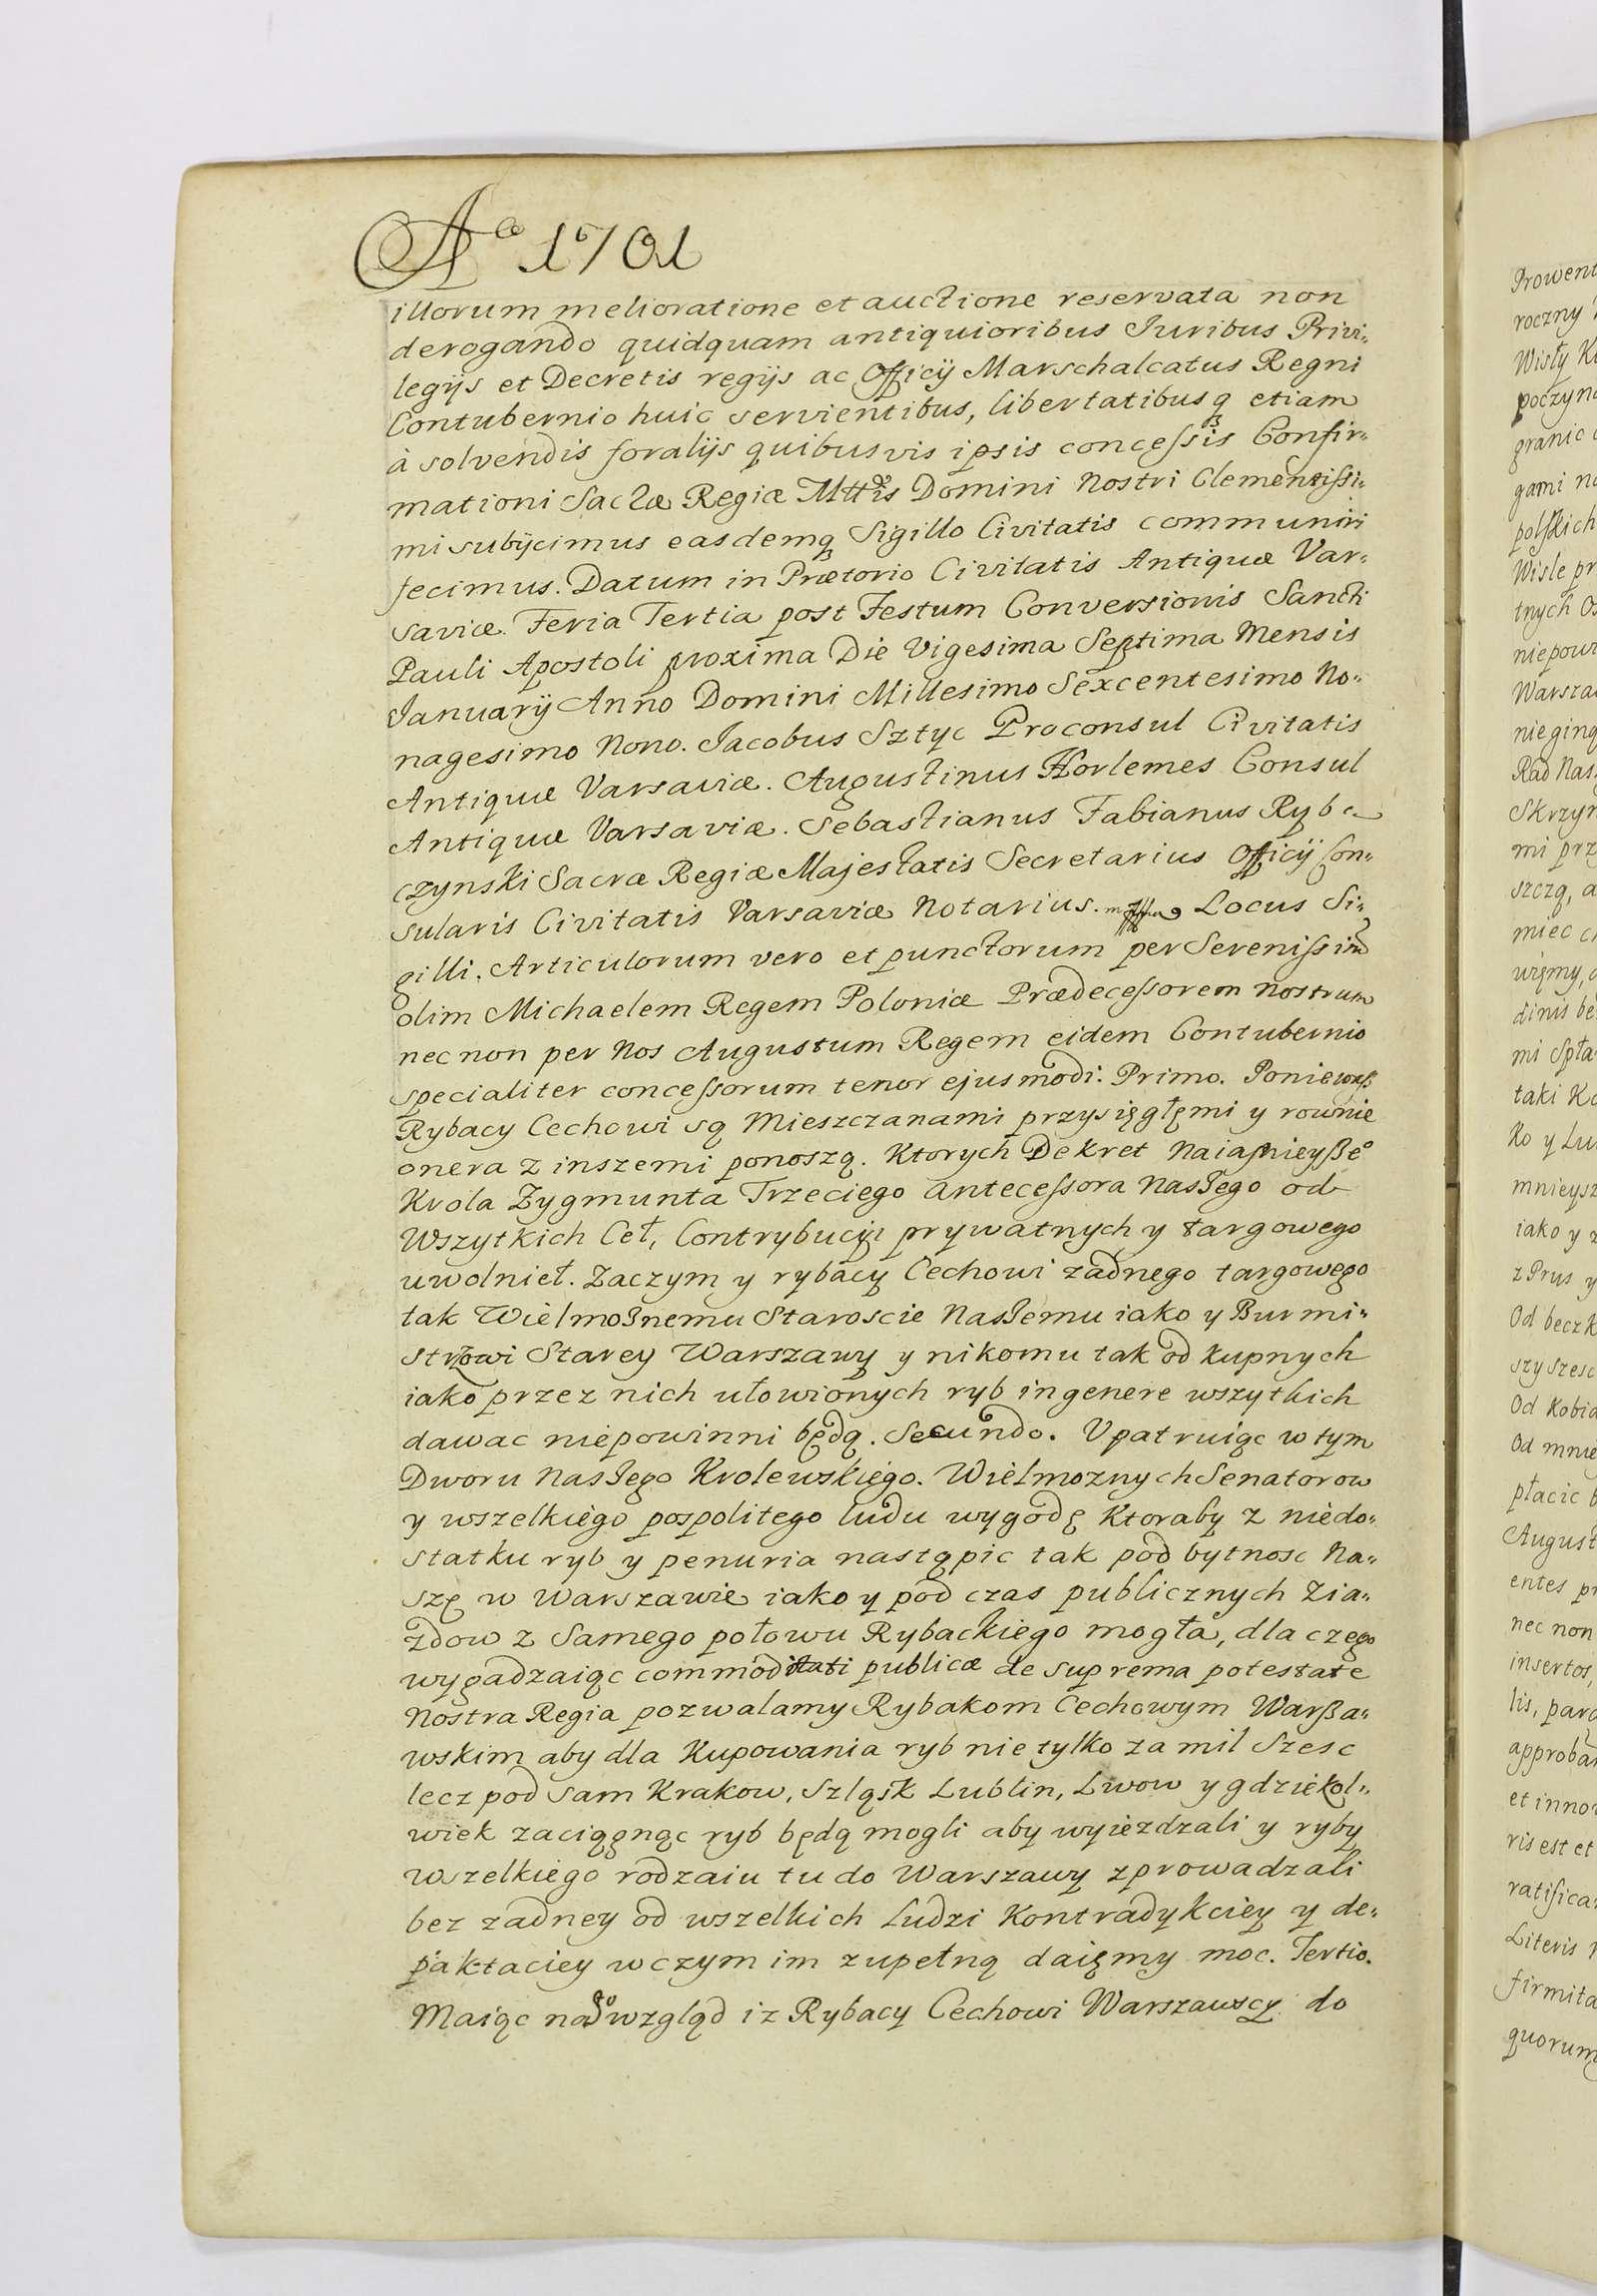 Aō 1701
illorum melioratione et auctione reservata non
derogando quidquam antiquioribus Iuribus Privi„
legijs et Decretis regijs ac Officij Marschalcatus Regni
Contubernio huic servientibus, libertatibusq etiam
à solvendis foralijs quibusvis ipsis concessis Confir„
mationi Sacræ Regiæ Mttis Domini Nostri Clementissi„
mi subijcimus easdemq Sigillo Civitatis communiri
fecimus. Datum in Prætorio Civitatis Antiquæ Var„
saviæ. Feria Tertia post Festum Conversionis Sancti
Pauli Apostoli proxima Die Vigesima Septima Mensis
Ianuarij Anno Domini Millesimo Sexcentesimo No„
nagesimo Nono. Iacobus Sztyc Proconsul Civitatis
Antiquæ Varsaviæ. Augustinus Horlemes Consul
Antiquæ Varsaviæ. Sebastianus Fabianus Rybc
czynski Sacræ Regiæ Majestatis Secretarius Officij Con„
sularis Civitatis Varsaviæ Notarius. Locus Si„
gilli. Articulorum vero et punctorum per Serenissim
olim Michaelem Regem Poloniæ Prædecessorem nostrum
nec non per Nos Augustum Regem eidem Contubernio
specialiter concessorum tenor ejusmodi. Primo. Poniewasz
Rybacy Cechowi są Mieszczanami przysięgłęmi y rownie
onera z inszemi ponoszą. Ktorych Dekret Naiasnieyszeo
Krola Zygmunta Trzeciego Antecessora Naszego od
Wszytkich Ceł, Contrybucyi prywatnych y targowego
uwolnieł. Zaczym y rybacy Cechowi zadnego targowego
tak Wielmożnemu Staroscie Naszemu iako y Burmi„
strzowi Starey Warszawy y nikomu tak od kupnych
iako przez nich ułowionych ryb in genere wszytkich
dawac niepowinni będą. Secundo. Upatruiąc w tym
Dworu Naszego Krolewskiego. Wielmoznych Senatorow
y wszelkiego pospolitego ludu wygodę Ktoraby z niedo„
statku ryb y penuria nastąpic tak pod bytnosc Na„
szę w Warszawie iako y pod czas publicznych Zia„
zdow z Samego połowu Rybackiego mogła, dla czego
wygadzaiąc commoditati publicæ de suprema potestate
Nostra Regia pozwalamy Rybakom Cechowym Warsza„
wskim aby dla Kupowania ryb nie tylko za mil Szesc
lecz pod sam Krakow, Szląsk Lublin, Lwow y gdziekol„
wiek zaciągnąc ryb będą mogli aby wyiezdzali y ryby
wszelkiego rodzaiu tu do Warszawy zprowadzali
bez zadney od wszelkich Ludzi Kontradykciey y de„
paktaciey w czym im zupełną daięmy moc. Tertio.
Maiąc na to wzgląd iz Rybacy Cechowi Warszawscy do
Prowent
roczny
Wisły
poczyn
granic
gami
polskich
Wisle pr
tnych
niepow
Warsza
nieginą
Rad Nas
Skrzyn
mi prz
szczą, a
miec
więmy,
dinis be
mi Spła
taki
ko y Lu
mnieysz
iako y
z Prus y
Od beczk
szy szesc
Od Kobia
Od mnie
płacic
August
entes pr
nec non
insertos,
lis,
approba
et inno
ris est et
ratifica
Literis
firmita
quorum